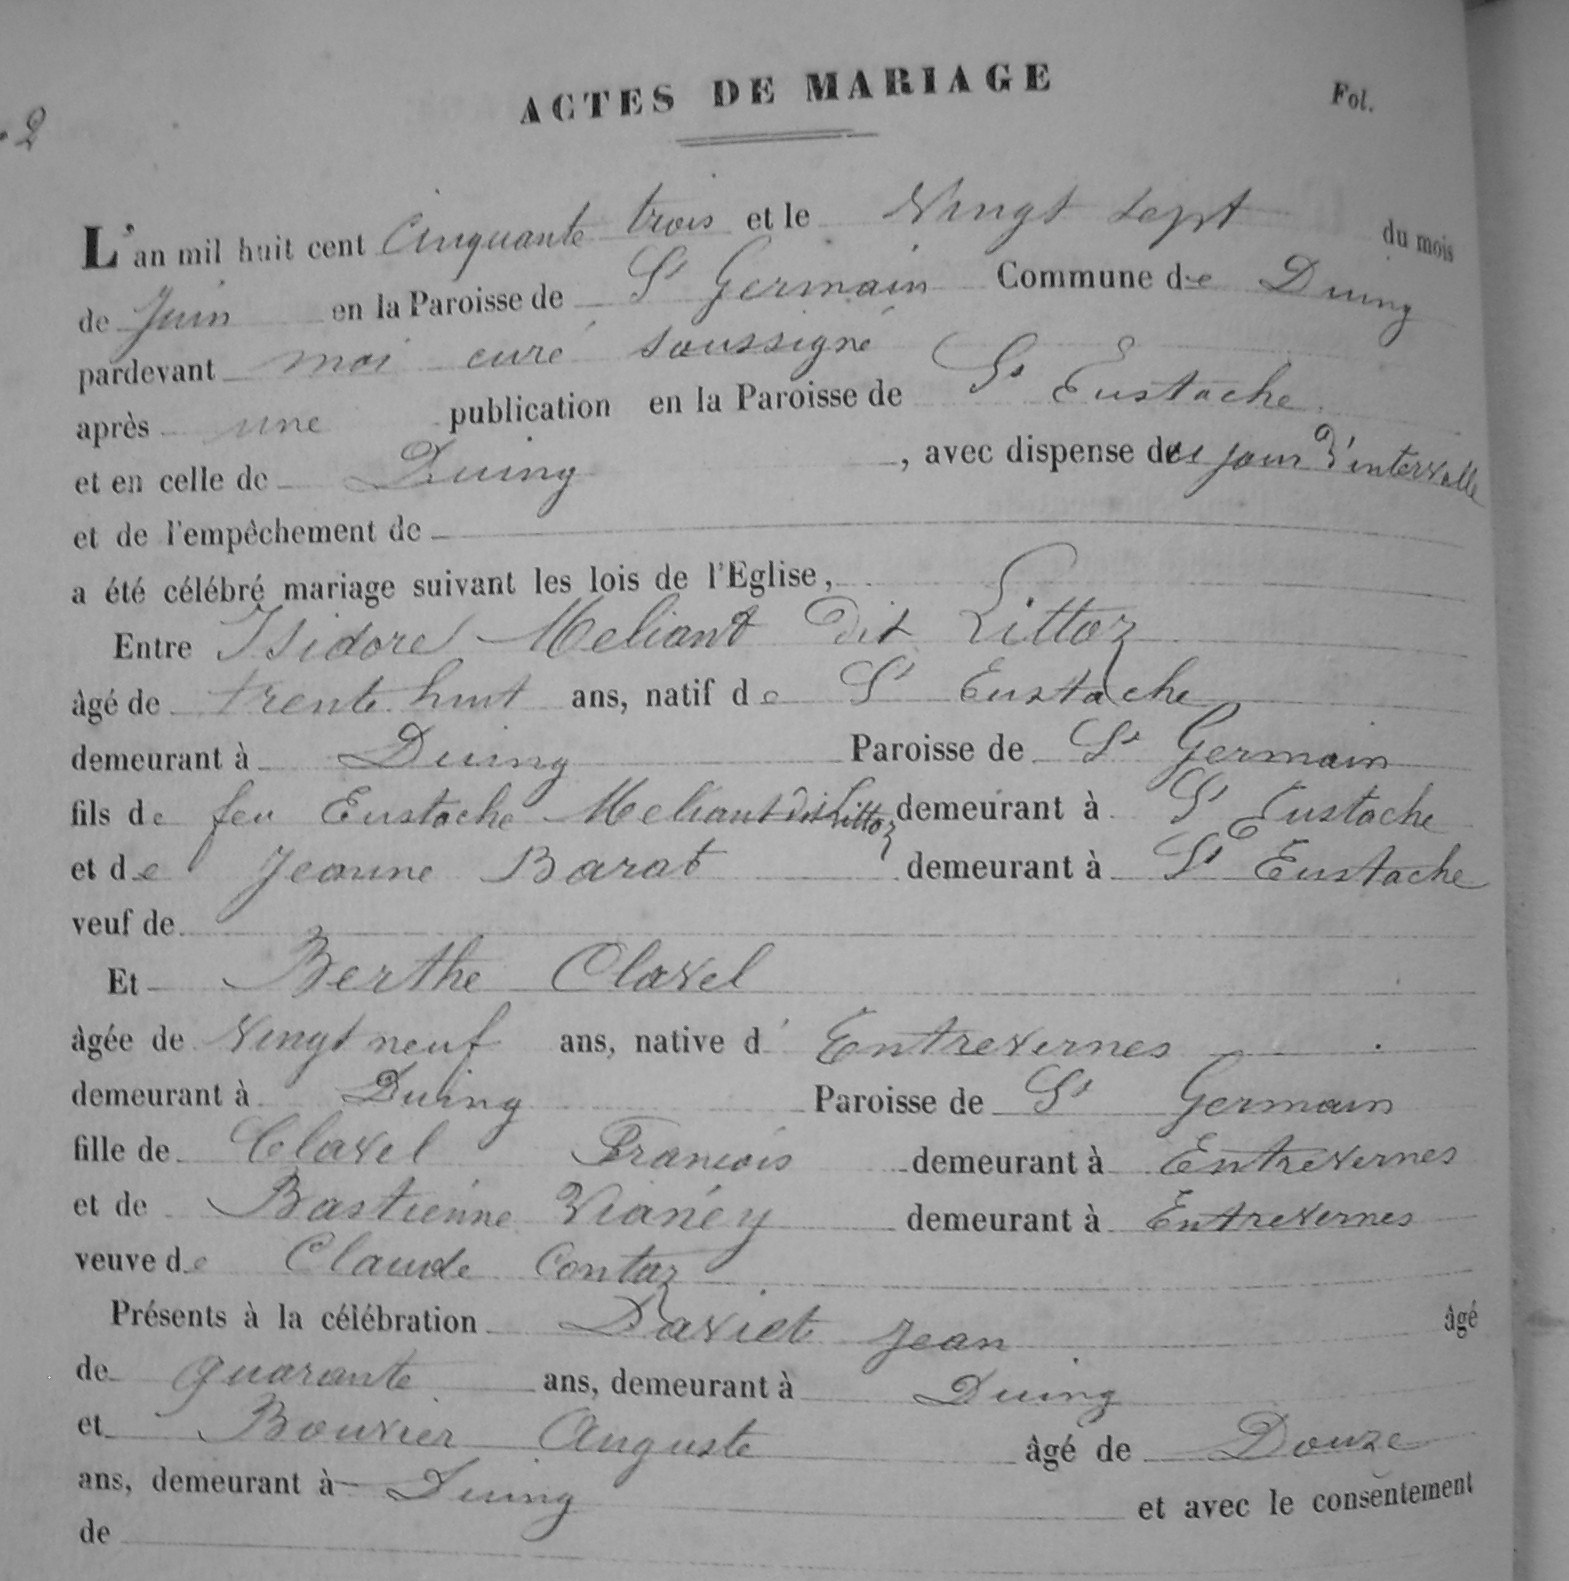 ACTES DE MARIAGE Fol.
2
L'an mil huit cent Cinquante trois et le Vingt sept du mois
de Juin en la Paroisse de St Germain Commune de Duing
pardevant moi curé soussigné
après une publication en la Paroisse de St Eustache
et en celle de Duing , avec dispense des jour d'intervalle
et de l'empêchement de
a été célébré mariage suivant les lois de l'Eglise,
Entre Isidore Meliant dit Littoz
âgé de trente huit ans, natif de St Eustache
demeurant à Duing Paroisse de St Germain
fils de feu Eustache Meliant dit Littoz demeurant à St Eustache
et de Jeanne Barat demeurant à St Eustache
veuf de
Et Berthe Clavel
âgée de Vingt neuf ans, native d' Entrevernes
demeurant à Duing Paroisse de St Germain
fille de Clavel François demeurant à Entrevernes
et de Bastienne Vianéy demeurant à Entrevernes
veuve de Claude Contaz
Présents à la célébration Daviet Jean âgé
de quarante ans, demeurant à Duing
et Bouvier Auguste âgé de Douze
ans, demeurant à Duing et avec le consentement
de